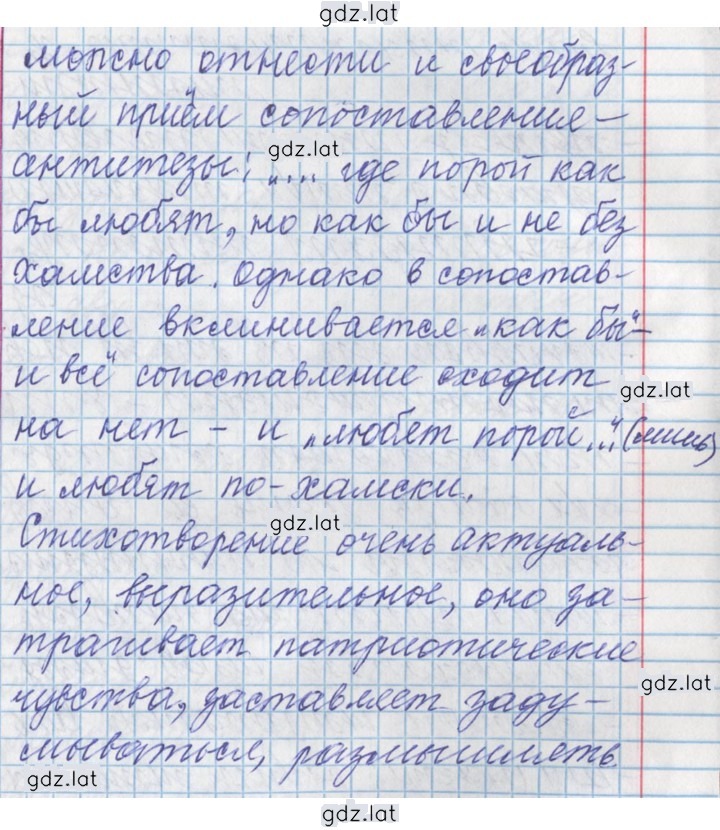 gdz.lat
можно отнести и своеобраз-
ный приём сопоставление-
антитезы: „.... где порой как
gdz.lat
бы любят, но как бы и не без
хамства. Однако в сопостав-
ление вклинивается „как бы"-
и всё сопоставление сходит
gdz.lat
на нет - и „любят порой..." (лишь)
и любят по-хамски.
gdz.lat
Стихотворение очень актуаль-
ное, выразительное, оно за-
трагивает патриотические
чувства, заставляет заду-
gdz.lat
мываться, размышлять
gdz.lat
gdz.lat